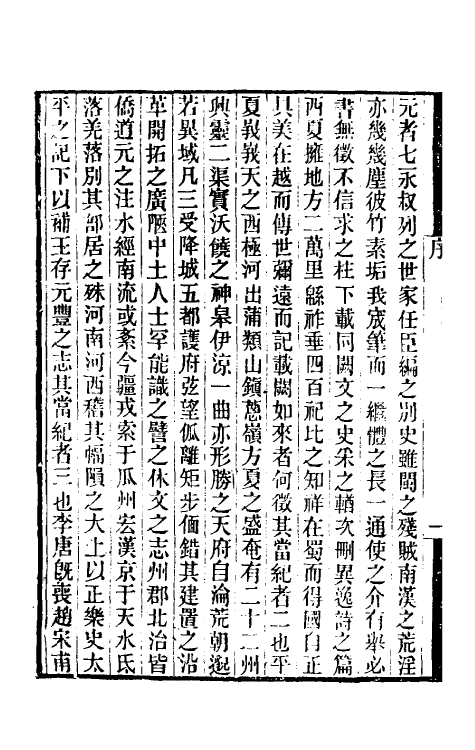 元者七永叔列之世家任臣編之別史雖閩之殘賊南漢之荒淫
亦幾幾塵彼竹素垢我宬筆而一繼體之長一通使之介有舉必
書無徵不信求之柱下載同闕文之史采之輶次刪異逸詩之篇
西夏擁地方二萬里緜祚垂四百祀比之知祥在蜀而得國自正
具美在越而傳世彌遠而記載闕如來者何徵其當紀者二也平
夏峩峩天之西極河出蒲類山鎮蔥嶺方夏之盛奄有二十二州
興靈二渠實沃饒之神皋伊涼一曲亦形勝之天府自淪荒朝邈
若異域凡三受降城五都護府弦望侊離矩步偭錯其建置之沿
革開拓之廣陿中土人士罕能識之譬之休文之志州郡北治皆
僑道元之注水經南流或紊今疆戎索于瓜州宏漢京于天水氐
落羌落別其部居之殊河南河西稽其幅隕之大上以正樂史太
平之記下以補王存元豐之志其當紀者三也李唐旣喪趙宋甫
序
一